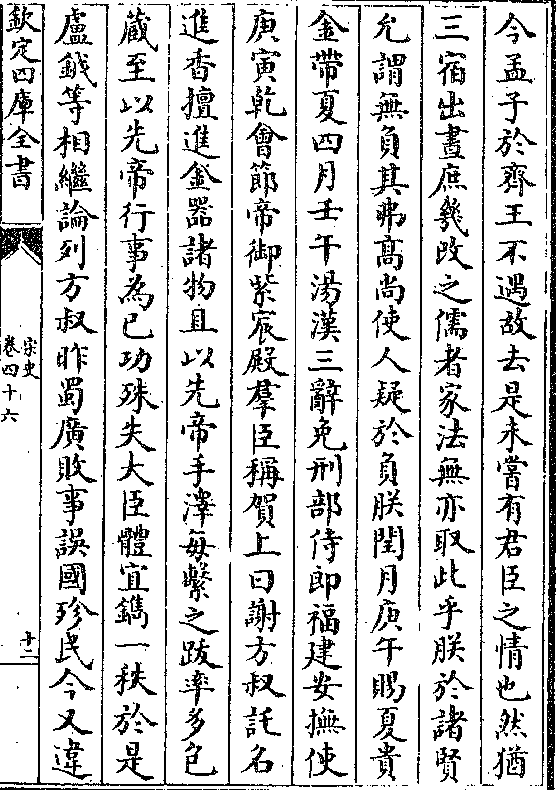 今孟子於齊王不遇故去是未嘗有君臣之情也然猶
三宿出晝庶幾改之儒者家法無亦取此乎朕於諸賢
允謂無負其弗高尚使人疑於負朕閏月庚午賜夏貴
金帶夏四月壬午湯漢三辭免刑部侍郎福建安撫使
庚寅乾會節帝御紫宸殿羣臣稱賀上曰謝方叔託名
進香擅進金器諸物且以先帝手澤每繫之跋率多包
藏至以先帝行事為已功殊失大臣體宜鐫一秩於是
盧鉞等相繼論列方叔昨蜀廣敗事誤國殄民今又違
欽定四庫全書
宋史
卷四十六
十二